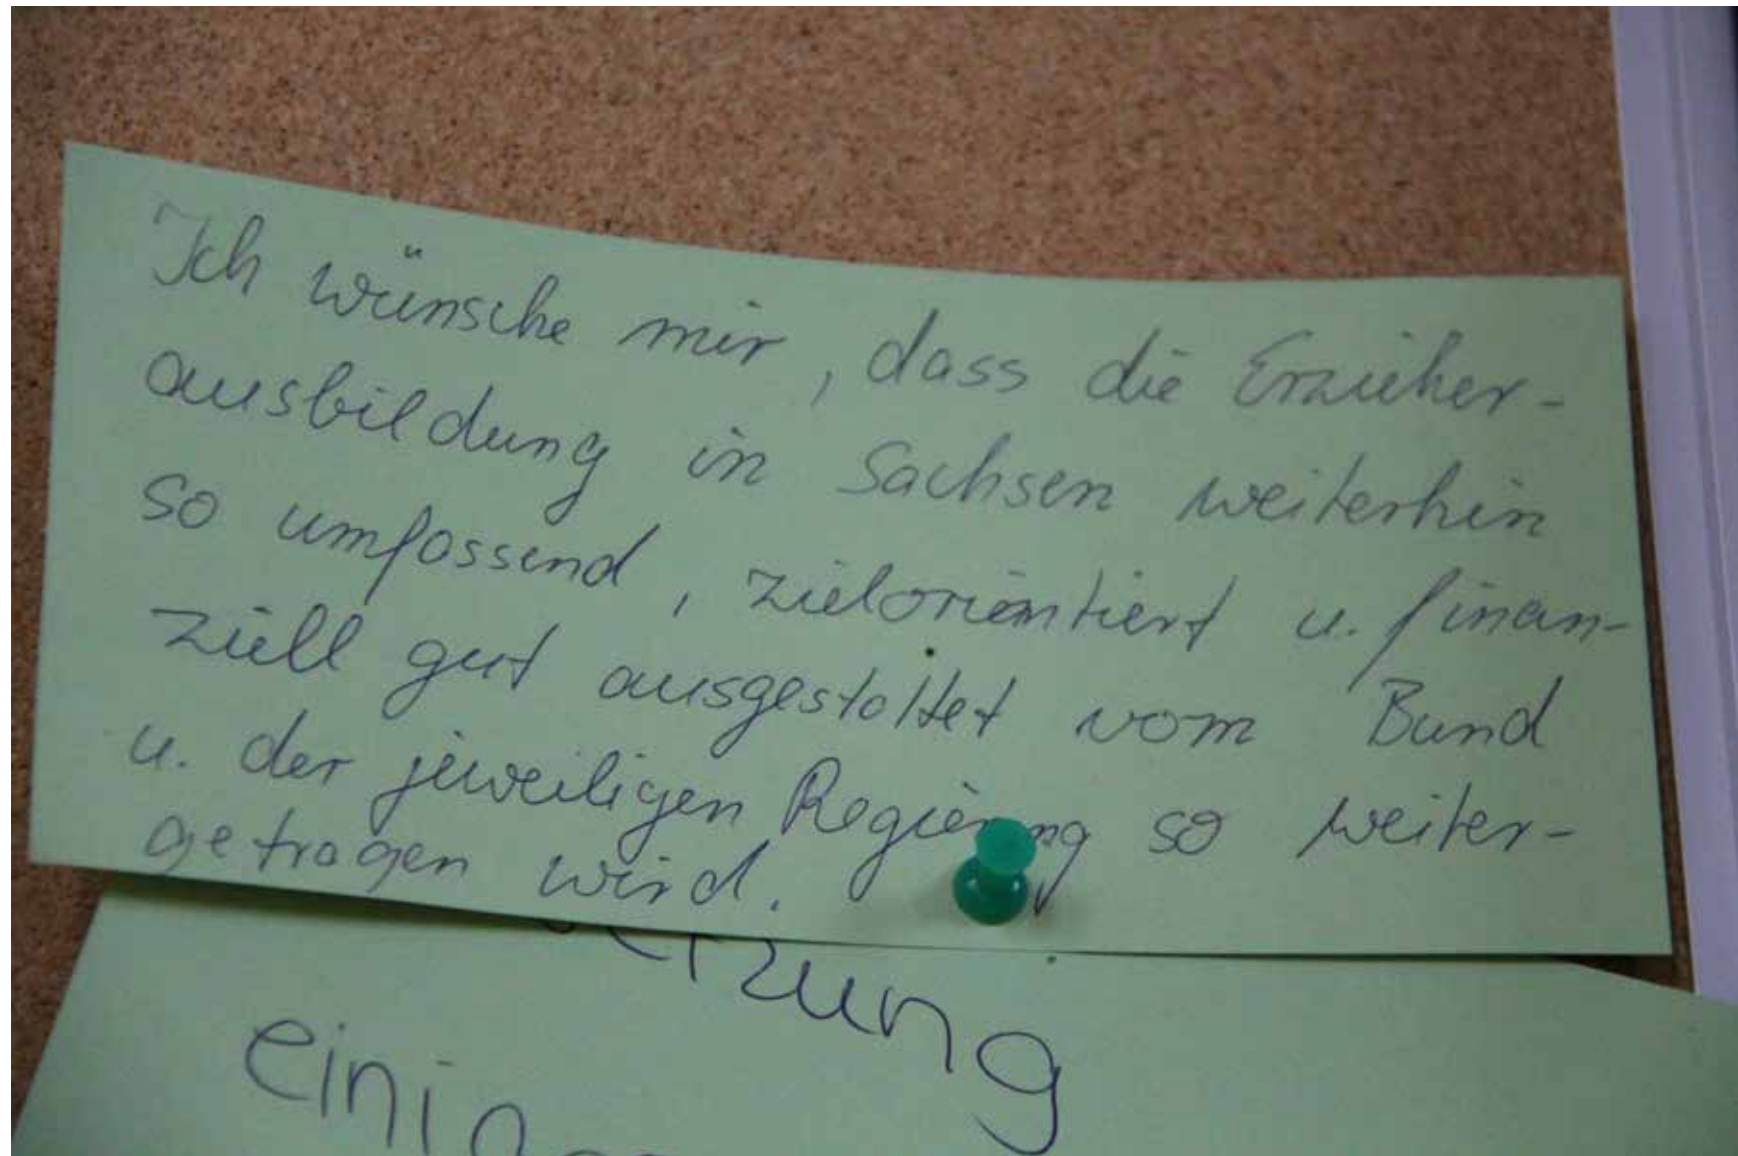 Ich wünsche mir, dass die Erzieher-
ausbildung in Sachsen weiterhin
so umfassend, zielorientiert u. finan-
ziell gut ausgestattet vom Bund
u. der jeweiligen Regierung so weiter-
getragen wird.